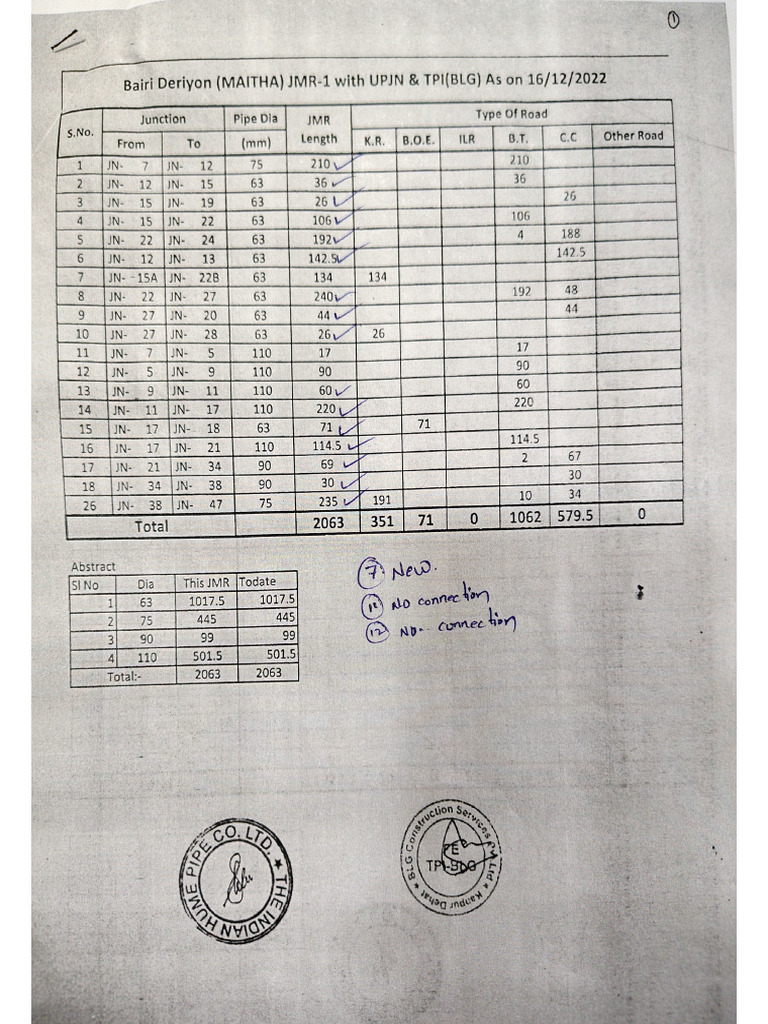 1
Bairi Deriyon (MAITHA) JMR-1 with UPJN & TPI(BLG) As on 16/12/2022
S.No. Junction Pipe Dia (mm) JMR Length Type Of Road
From To K.R. B.O.E. ILR B.T. C.C Other Road
1 JN- 7 JN- 12 75 210 210
2 JN- 12 JN- 15 63 36 36
3 JN- 15 JN- 19 63 26 26
4 JN- 15 JN- 22 63 106 106
5 JN- 22 JN- 24 63 192 4 188
6 JN- 12 JN- 13 63 142.5 142.5
7 JN- 15A JN- 22B 63 134 134
8 JN- 22 JN- 27 63 240 192 48
9 JN- 27 JN- 20 63 44 44
10 JN- 27 JN- 28 63 26 26
11 JN- 7 JN- 5 110 17 17
12 JN- 5 JN- 9 110 90 90
13 JN- 9 JN- 11 110 60 60
14 JN- 11 JN- 17 110 220 220
15 JN- 17 JN- 18 63 71 71
16 JN- 17 JN- 21 110 114.5 114.5
17 JN- 21 JN- 34 90 69 2 67
18 JN- 34 JN- 38 90 30 30
26 JN- 38 JN- 47 75 235 191 10 34
Total 2063 351 71 0 1062 579.5 0
Abstract
Sl No Dia This JMR Todate
1 63 1017.5 1017.5
2 75 445 445
3 90 99 99
4 110 501.5 501.5
Total:- 2063 2063
7 New.
No connection
12 No- connection
THE INDIAN HUME PIPE CO. LTD.
BLG Construction Services Pvt Ltd
TPI-BLG
Kanpur Dehat